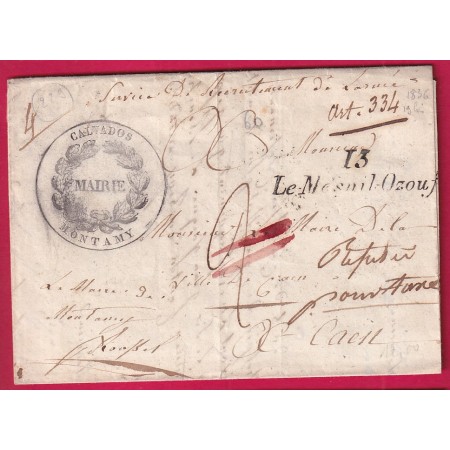 Service De Recrutement de l'armée
1836
4
Art. 334
CALVADOS
MAIRIE
MONTAMY
Monsieur
13
Le-Mesnil-Ozouf
Monsieur le Maire de la
Ville de Caen
Refusé
pour taxe
à Caen
Le Maire de
Montamy